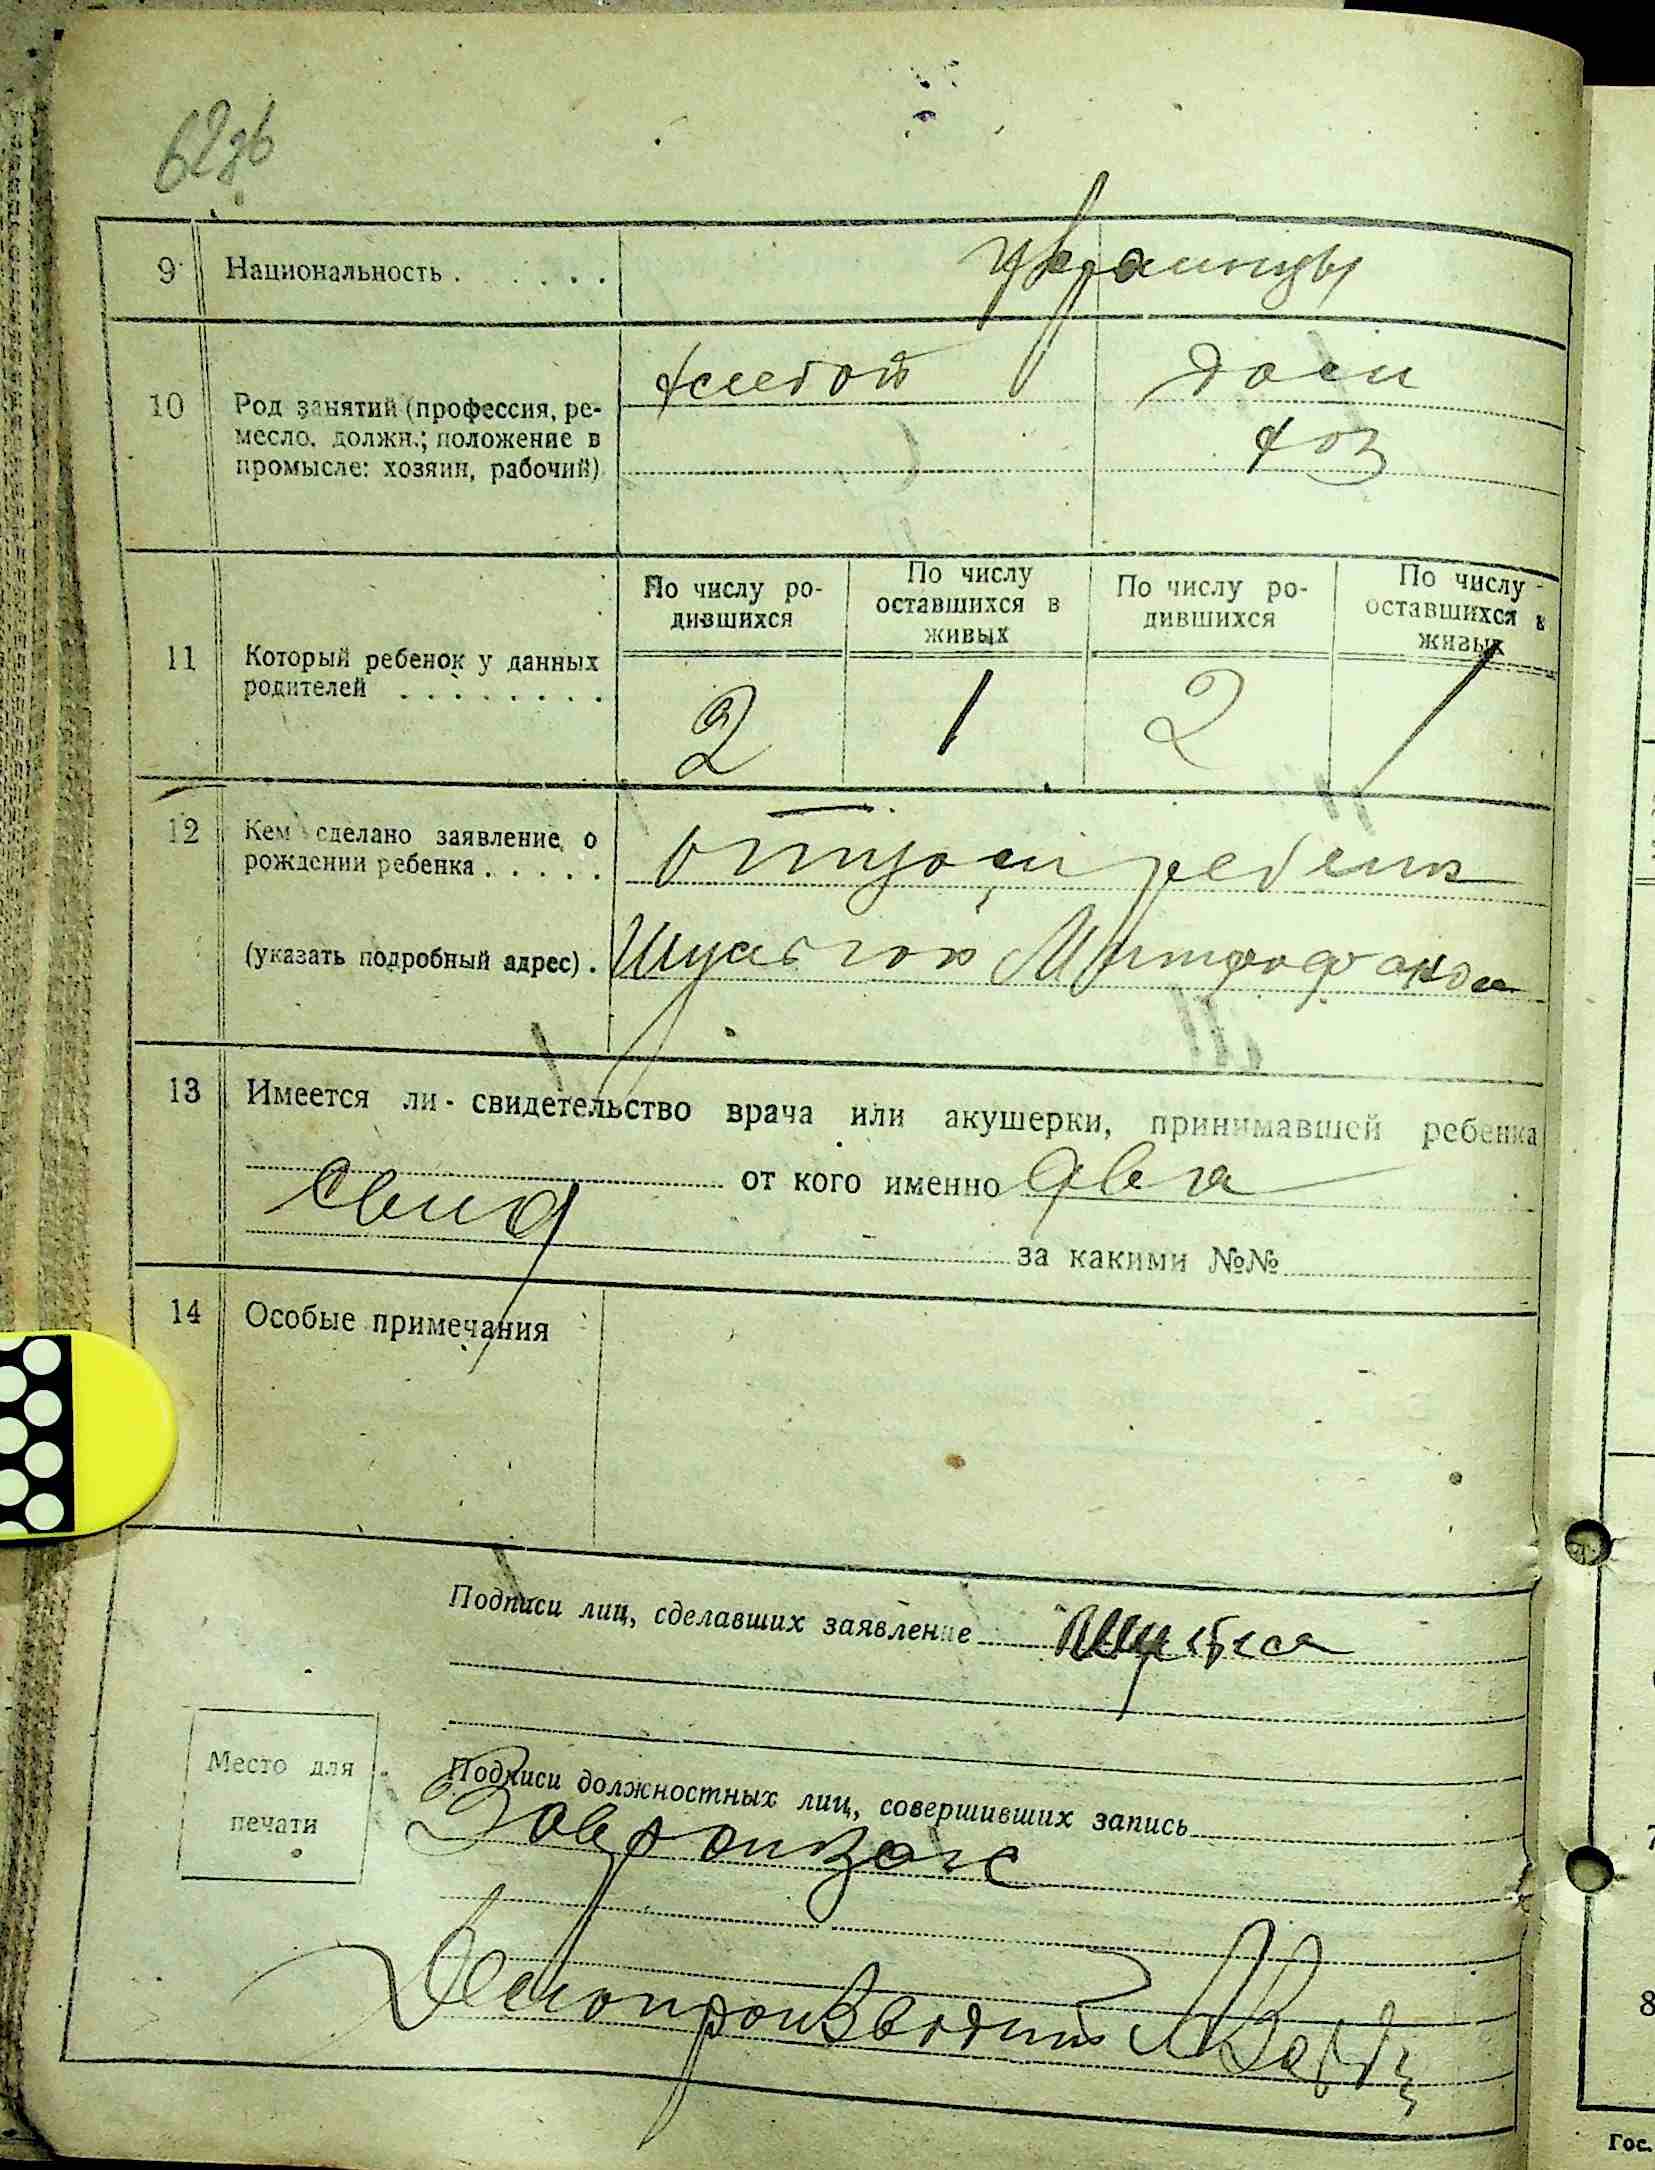 62 об
9 Национальность . . . . . . украинцы
10 Род занятий (профессия, ре-
месло, должн.; положение в
промысле: хозяин, рабочий)
хлебоп дом
хоз
По числу ро-
дившихся
По числу
оставшихся в
живых
По числу ро-
дившихся
По числу
оставшихся в
живых
11 Который ребенок у данных
родителей . . . . . . . .
2 1 2 1
12 Кем сделано заявление о
рождении ребенка . . . . . отцом ребенк
(указать подробный адрес) .
13 Имеется ли свидетельство врача или акушерки, принимавшей ребенка
от кого именно два
свид
за какими №№
14 Особые примечания
Подписи лиц, сделавших заявление
Место для
печати
Подписи должностных лиц, совершивших запись
Завронзагс
Делопроизводит
7
8
Гос.